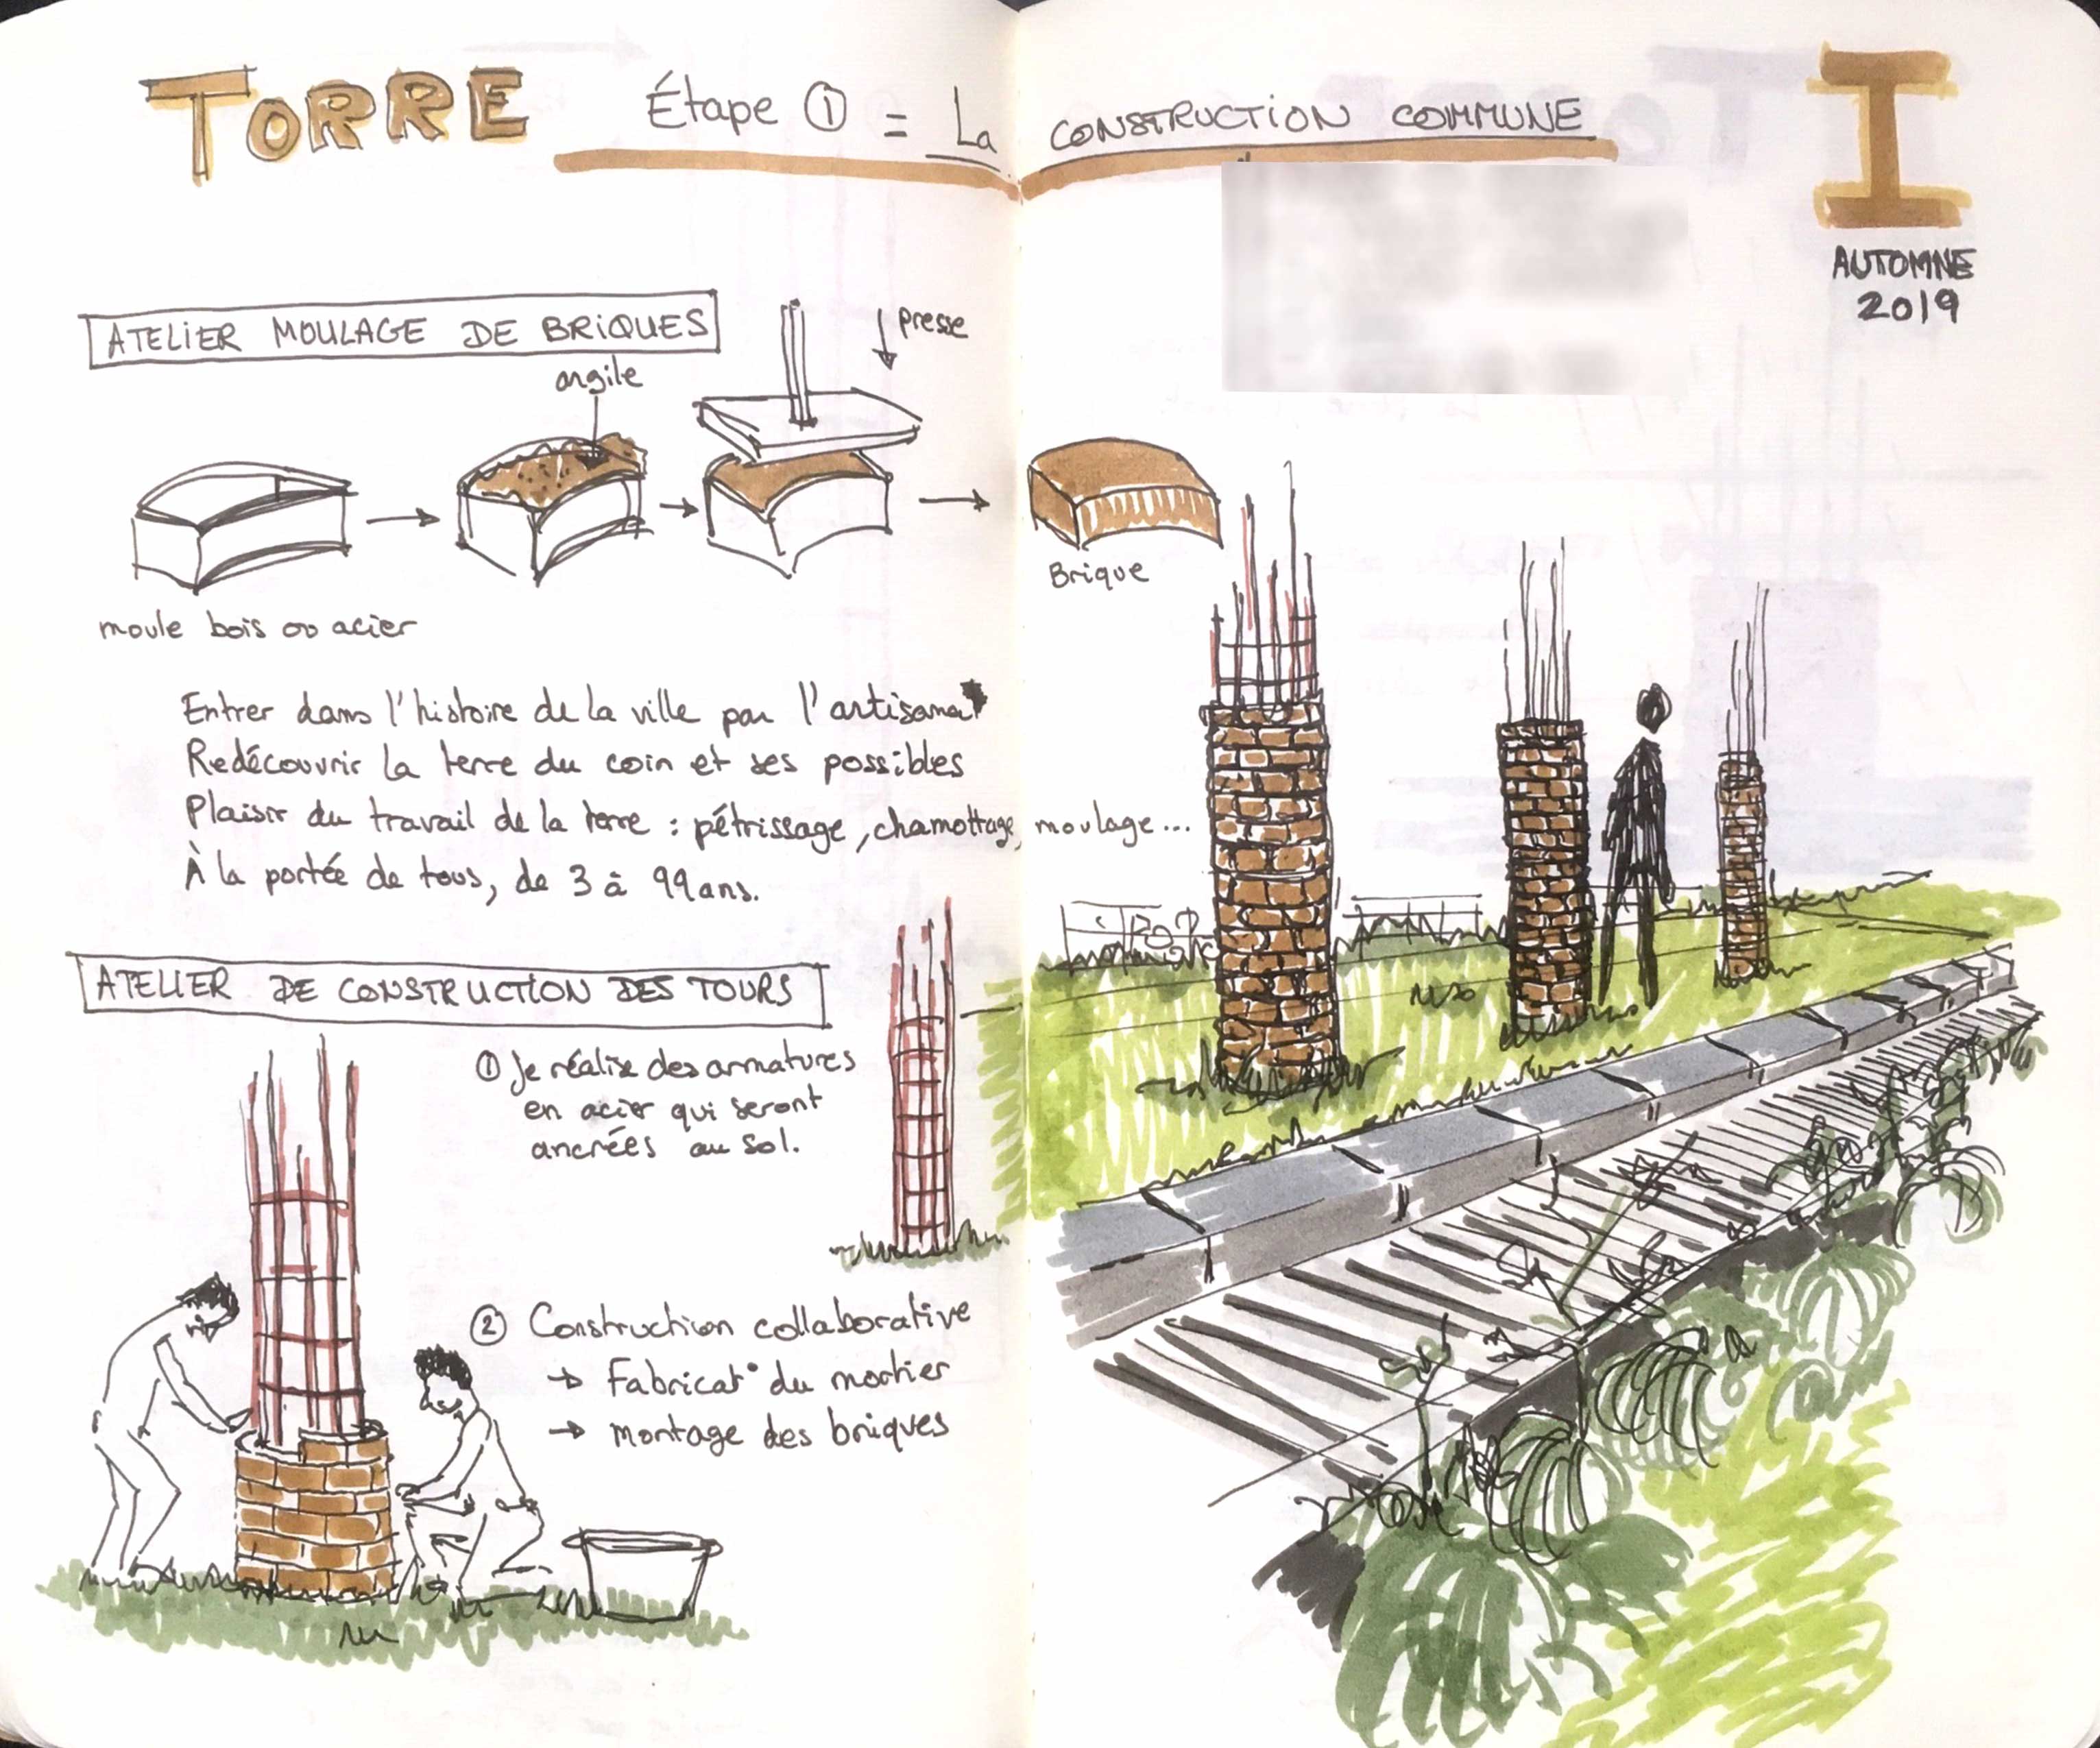 TORRE Étape ① = La CONSTRUCTION COMMUNE
I
AUTOMNE
2019
ATELIER MOULAGE DE BRIQUES
argile
presse
moule bois ou acier
Brique
Entrer dans l'histoire de la ville par l'artisanat
Redécouvrir la terre du coin et ses possibles
Plaisir du travail de la terre : pétrissage, chamottage, moulage...
À la portée de tous, de 3 à 99 ans.
ATELIER DE CONSTRUCTION DES TOURS
① Je réalise des armatures
en acier qui seront
ancrées au sol.
② Construction collaborative
→ Fabricat° du mortier
→ montage des briques